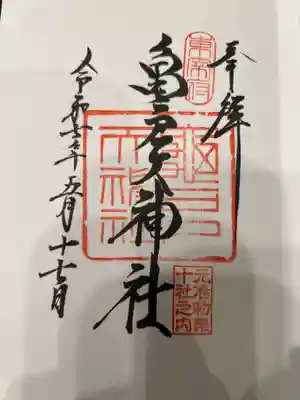 奉拝
東宰府
亀戸天神社
亀戸
天神社
元准勅祭
十社之内
令和六年五月十七日